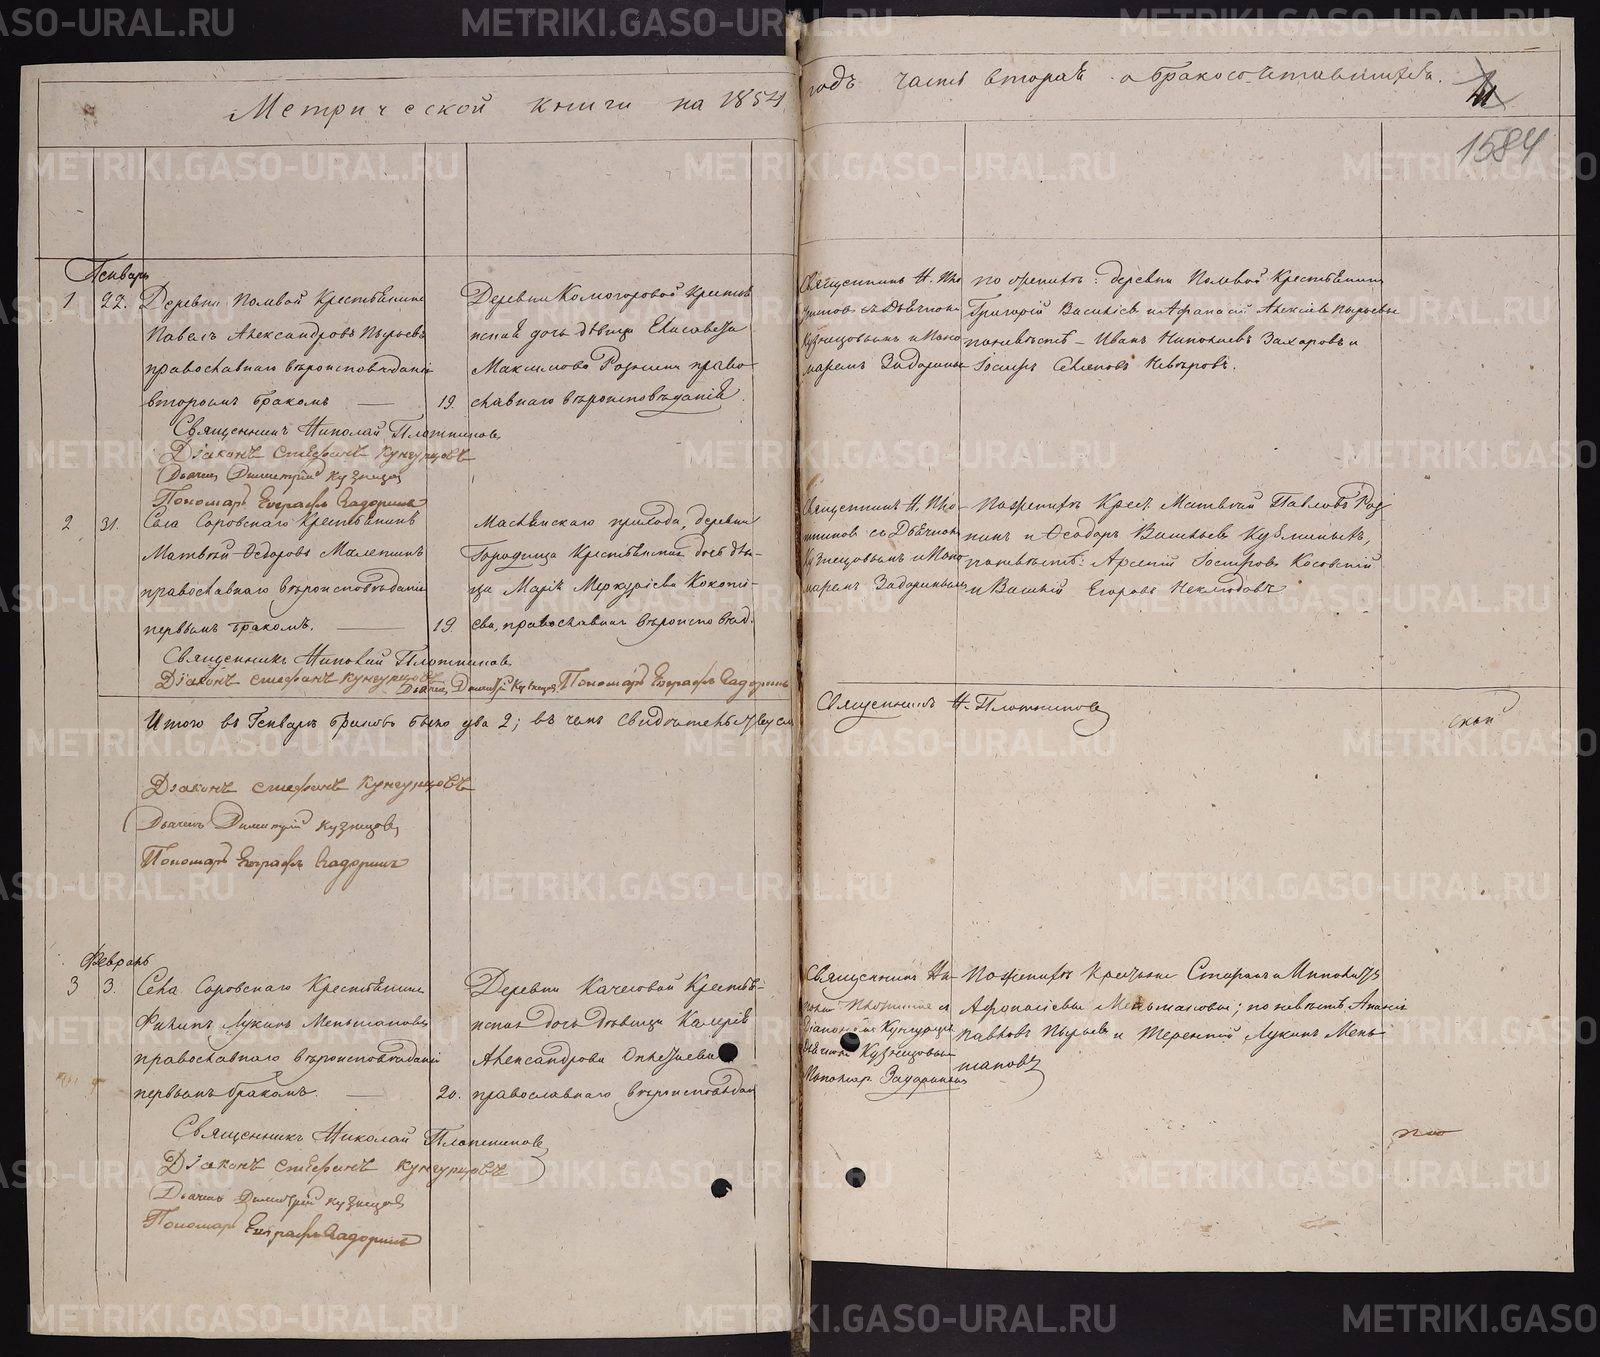 Метрической книги на 1854
годъ часть вторая о бракосочетавшихся.
1584
Генварь
1 22. Деревни Полевой Крестьянинъ
Павелъ Александровъ Пырьевъ
православнаго вѣроисповѣданія
вторымъ бракомъ — 19.
Деревни Комогоровой Крестья
нская дочь дѣвица Елисавета
Максимова
православнаго вѣроисповѣданія.
Священникъ Н. Пло
тниковъ съ Дьячкомъ
Кузнецовымъ и Поно
маремъ Задоринымъ
по женихѣ: деревни Полевой Крестьянинъ
Григорій Василіевъ и Афанасій Алексіевъ Пырьевы
по невѣстѣ — Иванъ Николаевъ Захаровъ и
Іосифъ
Священникъ Николай Плотниковъ
Діаконъ Стефанъ Кунгурцовъ
Дьячекъ Димитрій Кузнецовъ
Пономарь Евграфъ Задоринъ
2 31. Села Соровскаго Крестьянинъ
Матвѣй Ѳедоровъ
православнаго вѣроисповѣданія
первымъ бракомъ. — 19
прихода, деревни
Городища Крестьянская дочь дѣви-
ца Марія Меркуріева
ва, православнаго вѣроисповѣд.
Священникъ Н. Пло
тниковъ съ Дьячкомъ
Кузнецовымъ и Поно
маремъ Задоринымъ
По женихѣ Крест. Матвѣй Павловъ
и Ѳеодоръ
по невѣстѣ: Арсеній
и Василій Егоровъ Неклюдовъ
Священникъ Николай Плотниковъ
Діаконъ Стефанъ Кунгурцовъ
Дьячекъ Димитрій Кузнецовъ Пономарь Евграфъ Задоринъ
Итого въ Генварѣ браковъ было два 2; въ чемъ свидѣтельствуемъ
Священникъ Н. Плотниковъ
Діаконъ Стефанъ Кунгурцовъ
Дьячекъ Димитрій Кузнецовъ
Пономарь Евграфъ Задоринъ
Февраль
3 3. Села Соровскаго Крестьянинъ
Филипъ Лукинъ Меньшаковъ
православнаго вѣроисповѣданія
первымъ бракомъ. — 20.
Деревни Качесовой Крестья-
нская дочь дѣвица Валерія
Александрова
православнаго вѣроисповѣдан
Священникъ Ни-
колай Плотниковъ съ
Діакономъ Кунгурцов
Дьячкомъ Кузнецовым
Пономар. Задоринымъ
По женихѣ Крестьяне Стефанъ и
Афонасіевы Меньшаковы; по невѣстѣ Ананій
Павловъ Пырьевъ и Терентій Лукинъ Мень-
шаковъ
Священникъ Николай Плотниковъ
Діаконъ Стефанъ Кунгурцовъ
Дьячекъ Димитрій Кузнецовъ
Пономарь Евграфъ Задоринъ
METRIKI.GASO-URAL.RU